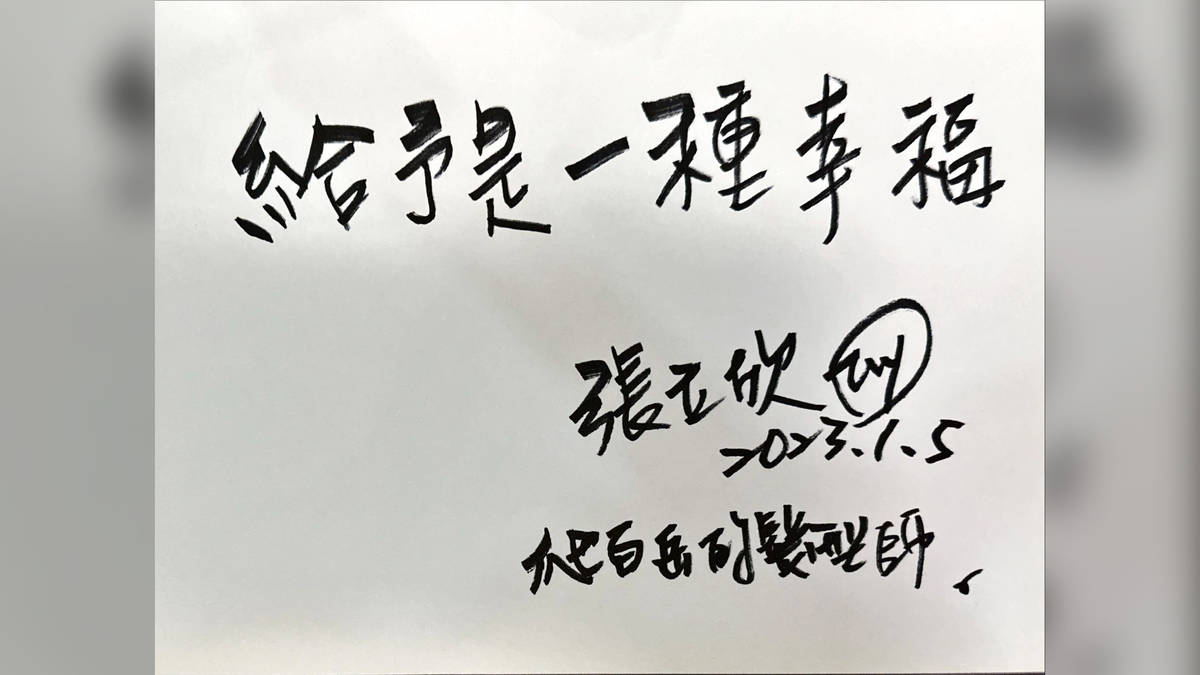 給予是一種幸福
張玉欣
2023.1.5
爬百岳的髮型師。